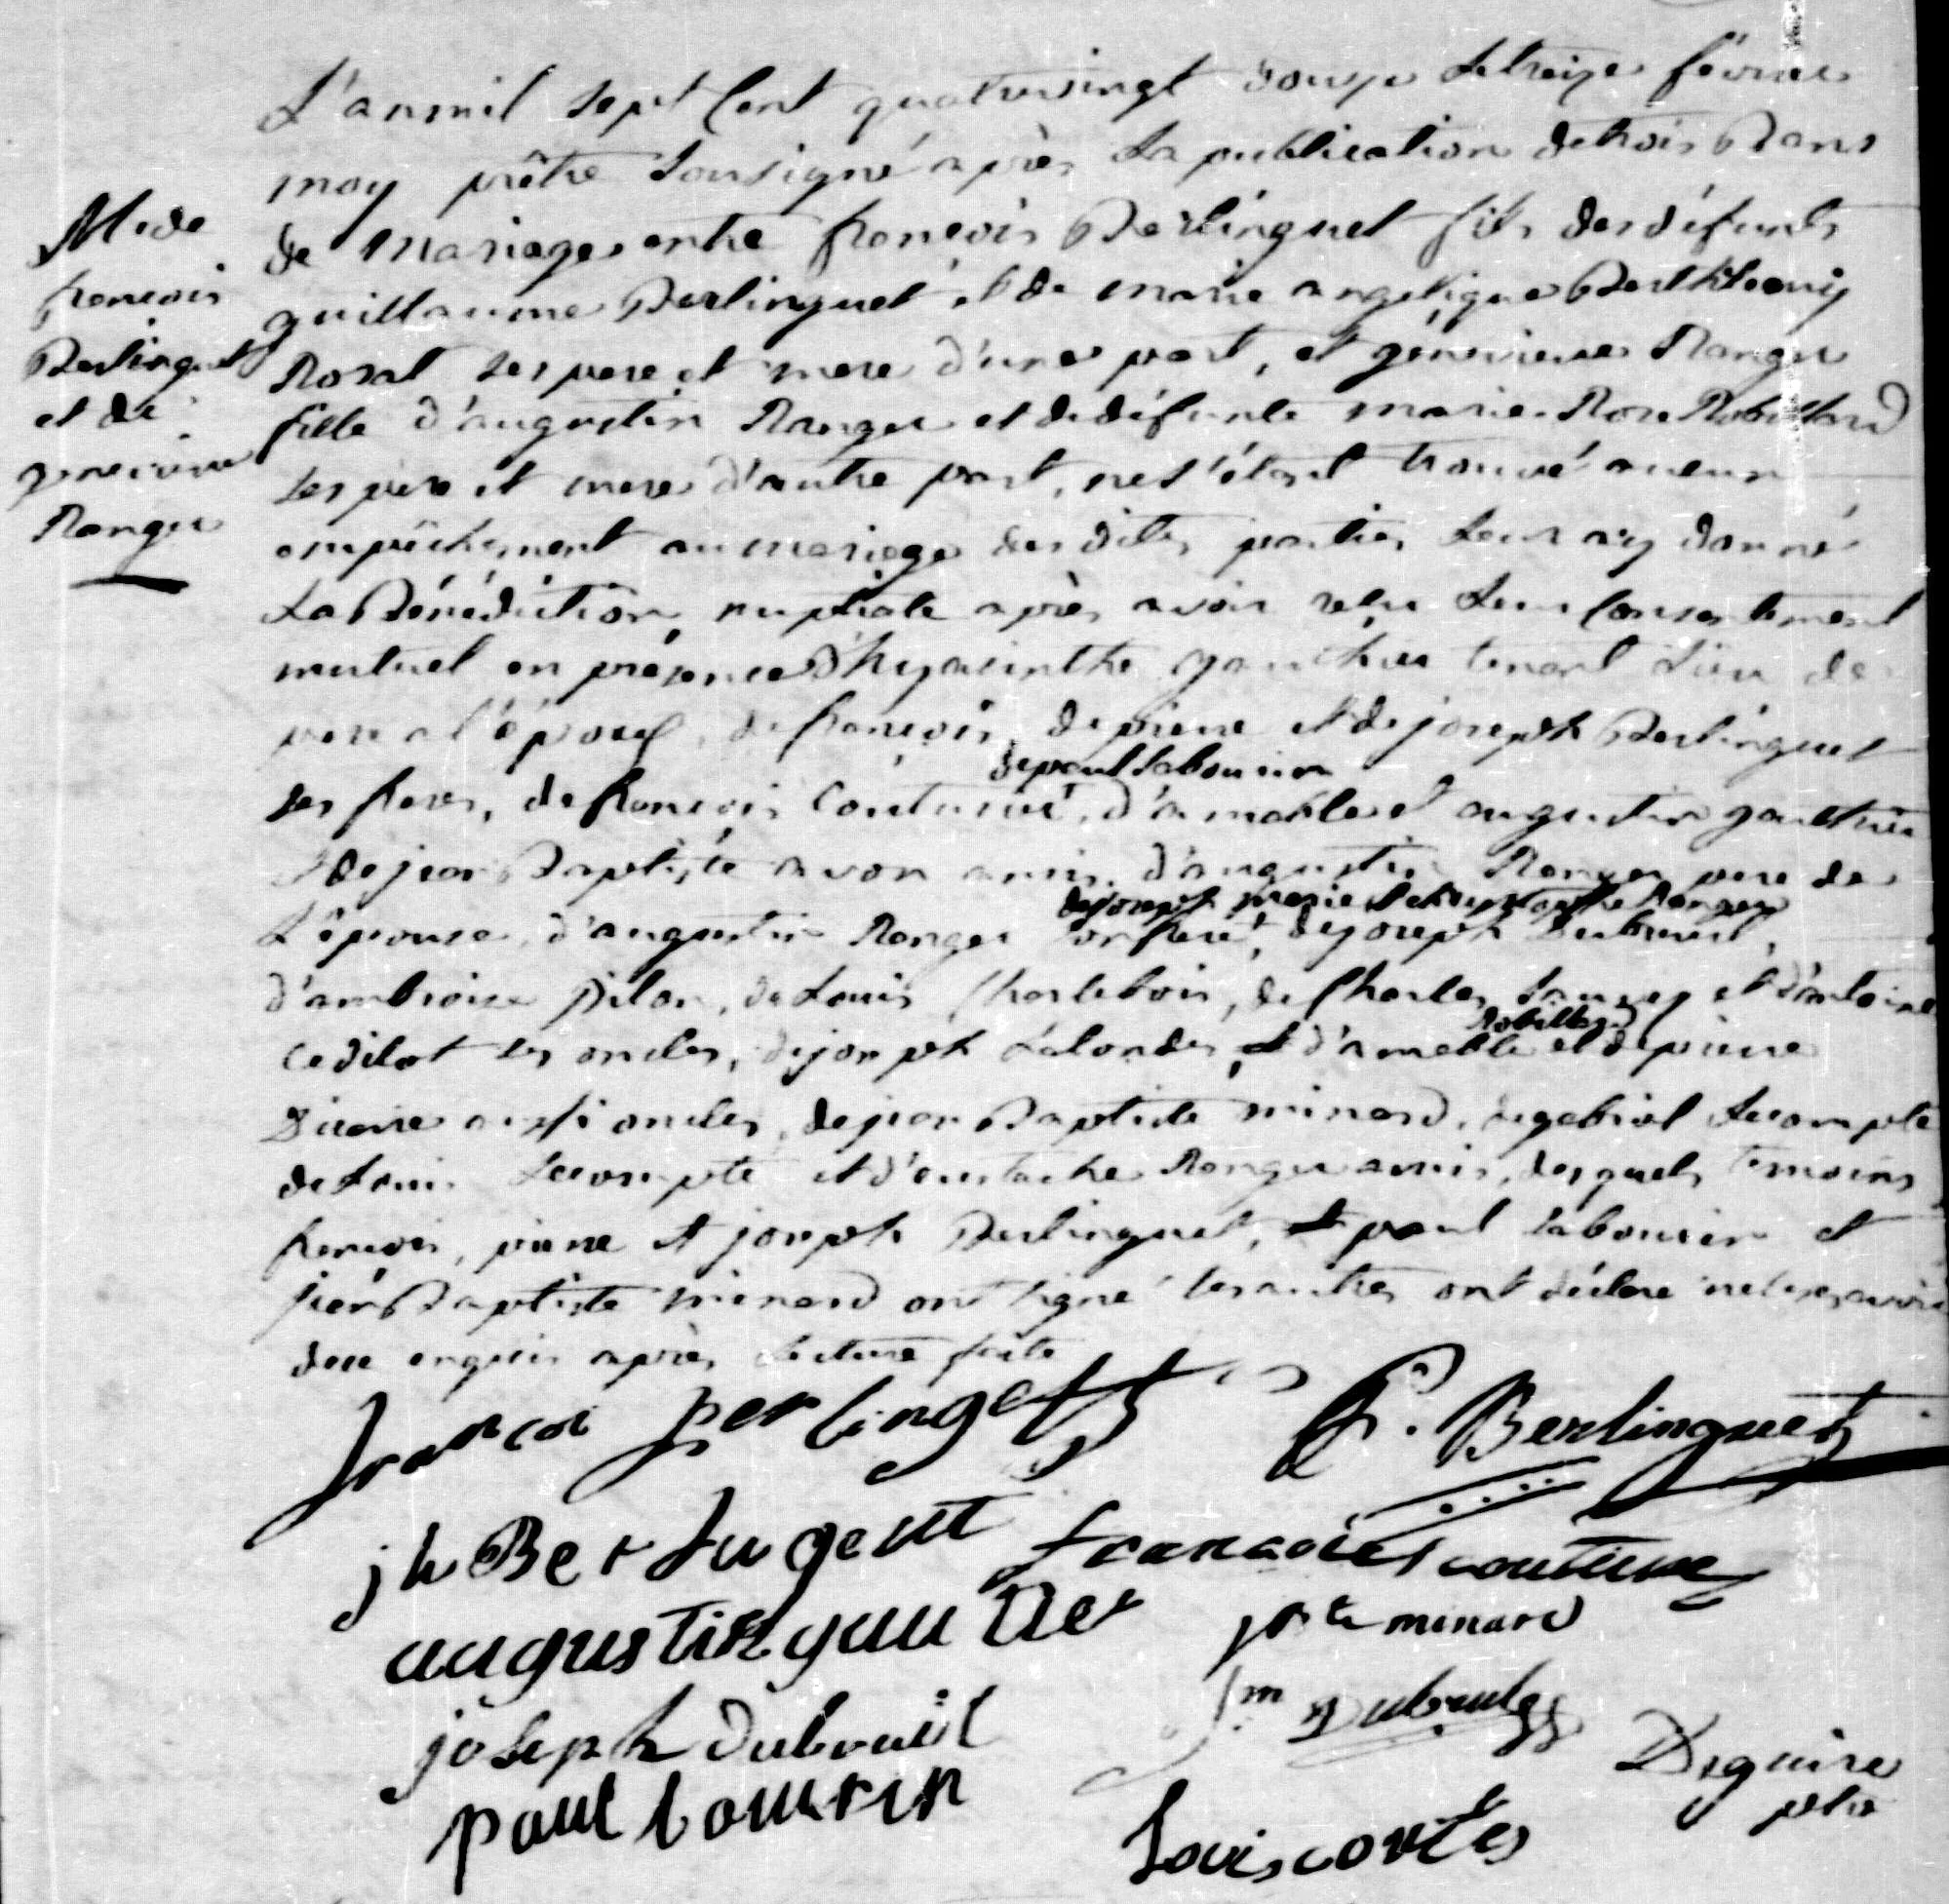 M. de
francois
Berlinguet
et de
genevieve
Ranger
L'an mil sept Cent quatrevingt douze Le treize février
moy prêtre Soussigné après La publication de trois Bans
de Mariage entre francois Berlinguet fils des défunts
guillaume Berlinguet et de marie angelique
ses pere et mere d'une part, et génevieve Ranger
fille d'augustin Ranger et de défunte marie Rose Robillard
ses pere et mere d'autre part, ne s'étant trouvé aucun
empêchement au mariage des dites parties Leur ay donné
La Bénédiction nuptiale après avoir reçu Leur Consentement
mutuel en présence d'hyacinthe gauthier tenant Lieu de
pere a l'époux, de francois, de pierre et de joseph Berlinguet
de paul Labourin
ses freres, de francois Couturié, d'amable et augustin gauthier
et de jean Baptiste avon amis, d'augustin Ranger pere de
de joseph marie et de Ranger
L'épouse, d'augustin Ranger son frere, de joseph Dubreuil,
d'ambroise pilon, de Louis Charlebois, de Charles et d'antoine
Robillard
cedilot ses oncles, de joseph Lalonde, d'amable et de pierre
aussi oncles, de jean Baptiste minard, de gabriel Lecompte
de Louis Lecompte et d'eustache Ranger amis, desquels temoins
francois, pierre et joseph Berlinguet, paul Labourin et
jean Baptiste minard ont signé les autres ont déclaré ne le sçavoir
de ce enquis après Lecture faite
francoi Berlinget P. Berlinguet
jh Berlugent francois couture
augustin gautier jbte minard
joseph dubruil Jm Dubreule
paul bourin Deguire
ptre
Louis contes